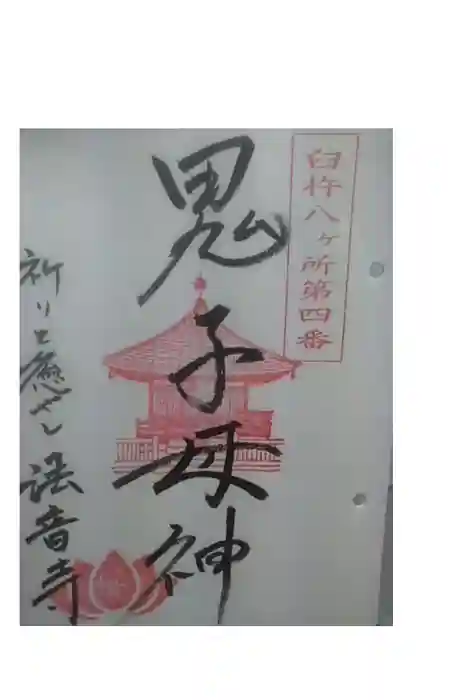 臼杵八ヶ所第四番
鬼子母神
祈りと癒やし 法音寺